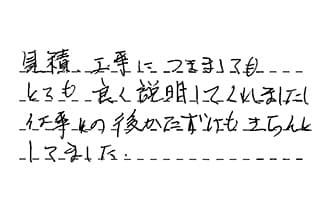 見積、工事につきましても
とても良く説明してくれましたし
仕事の後かたずけもきちんと
してました.